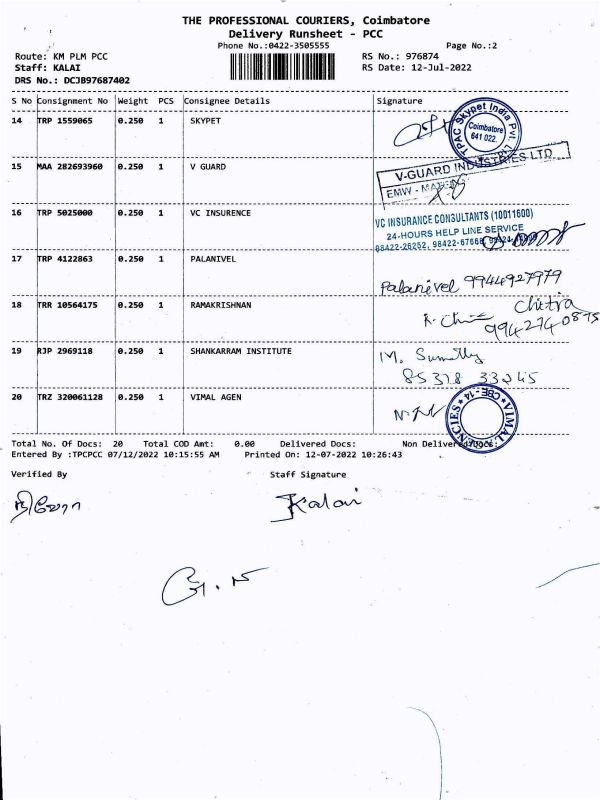 THE PROFESSIONAL COURIERS, Coimbatore
Delivery Runsheet - PCC
Phone No.:0422-3505555 Page No.:2
Route: KM PLM PCC RS No.: 976874
Staff: KALAI RS Date: 12-Jul-2022
DRS No.: DCJB97687402
S No Consignment No Weight PCS Consignee Details Signature
14 TRP 1559065 0.250 1 SKYPET
Skypet India Pvt. Coimbatore 641 022.
15 MAA 282693960 0.250 1 V GUARD
V-GUARD INDUSTRIES LTD
EMW -
16 TRP 5025000 0.250 1 VC INSURENCE
VC INSURANCE CONSULTANTS (10011600)
24-HOURS HELP LINE SERVICE
98422-26262, 98422-67666,
17 TRP 4122863 0.250 1 PALANIVEL
Palanivel 9944927979
18 TRR 10564175 0.250 1 RAMAKRISHNAN
Chitra
9942740875
19 RJP 2969118 0.250 1 SHANKARRAM INSTITUTE
M.
85328 33245
20 TRZ 320061128 0.250 1 VIMAL AGEN
VIMAL AGENCIES CBE-14
Total No. Of Docs: 20 Total COD Amt: 0.00 Delivered Docs: Non Delivered Docs:
Entered By :TPCPCC 07/12/2022 10:15:55 AM Printed On: 12-07-2022 10:26:43
Verified By Staff Signature
Kalai